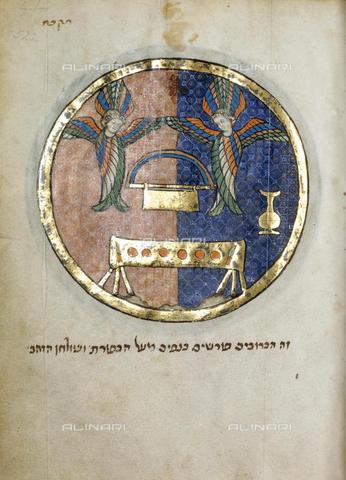 ALINARI
ALINARI
ALINARI
זה הכרובים פורשים כנפים הכפורת ושולחן הזהב
ALINARI